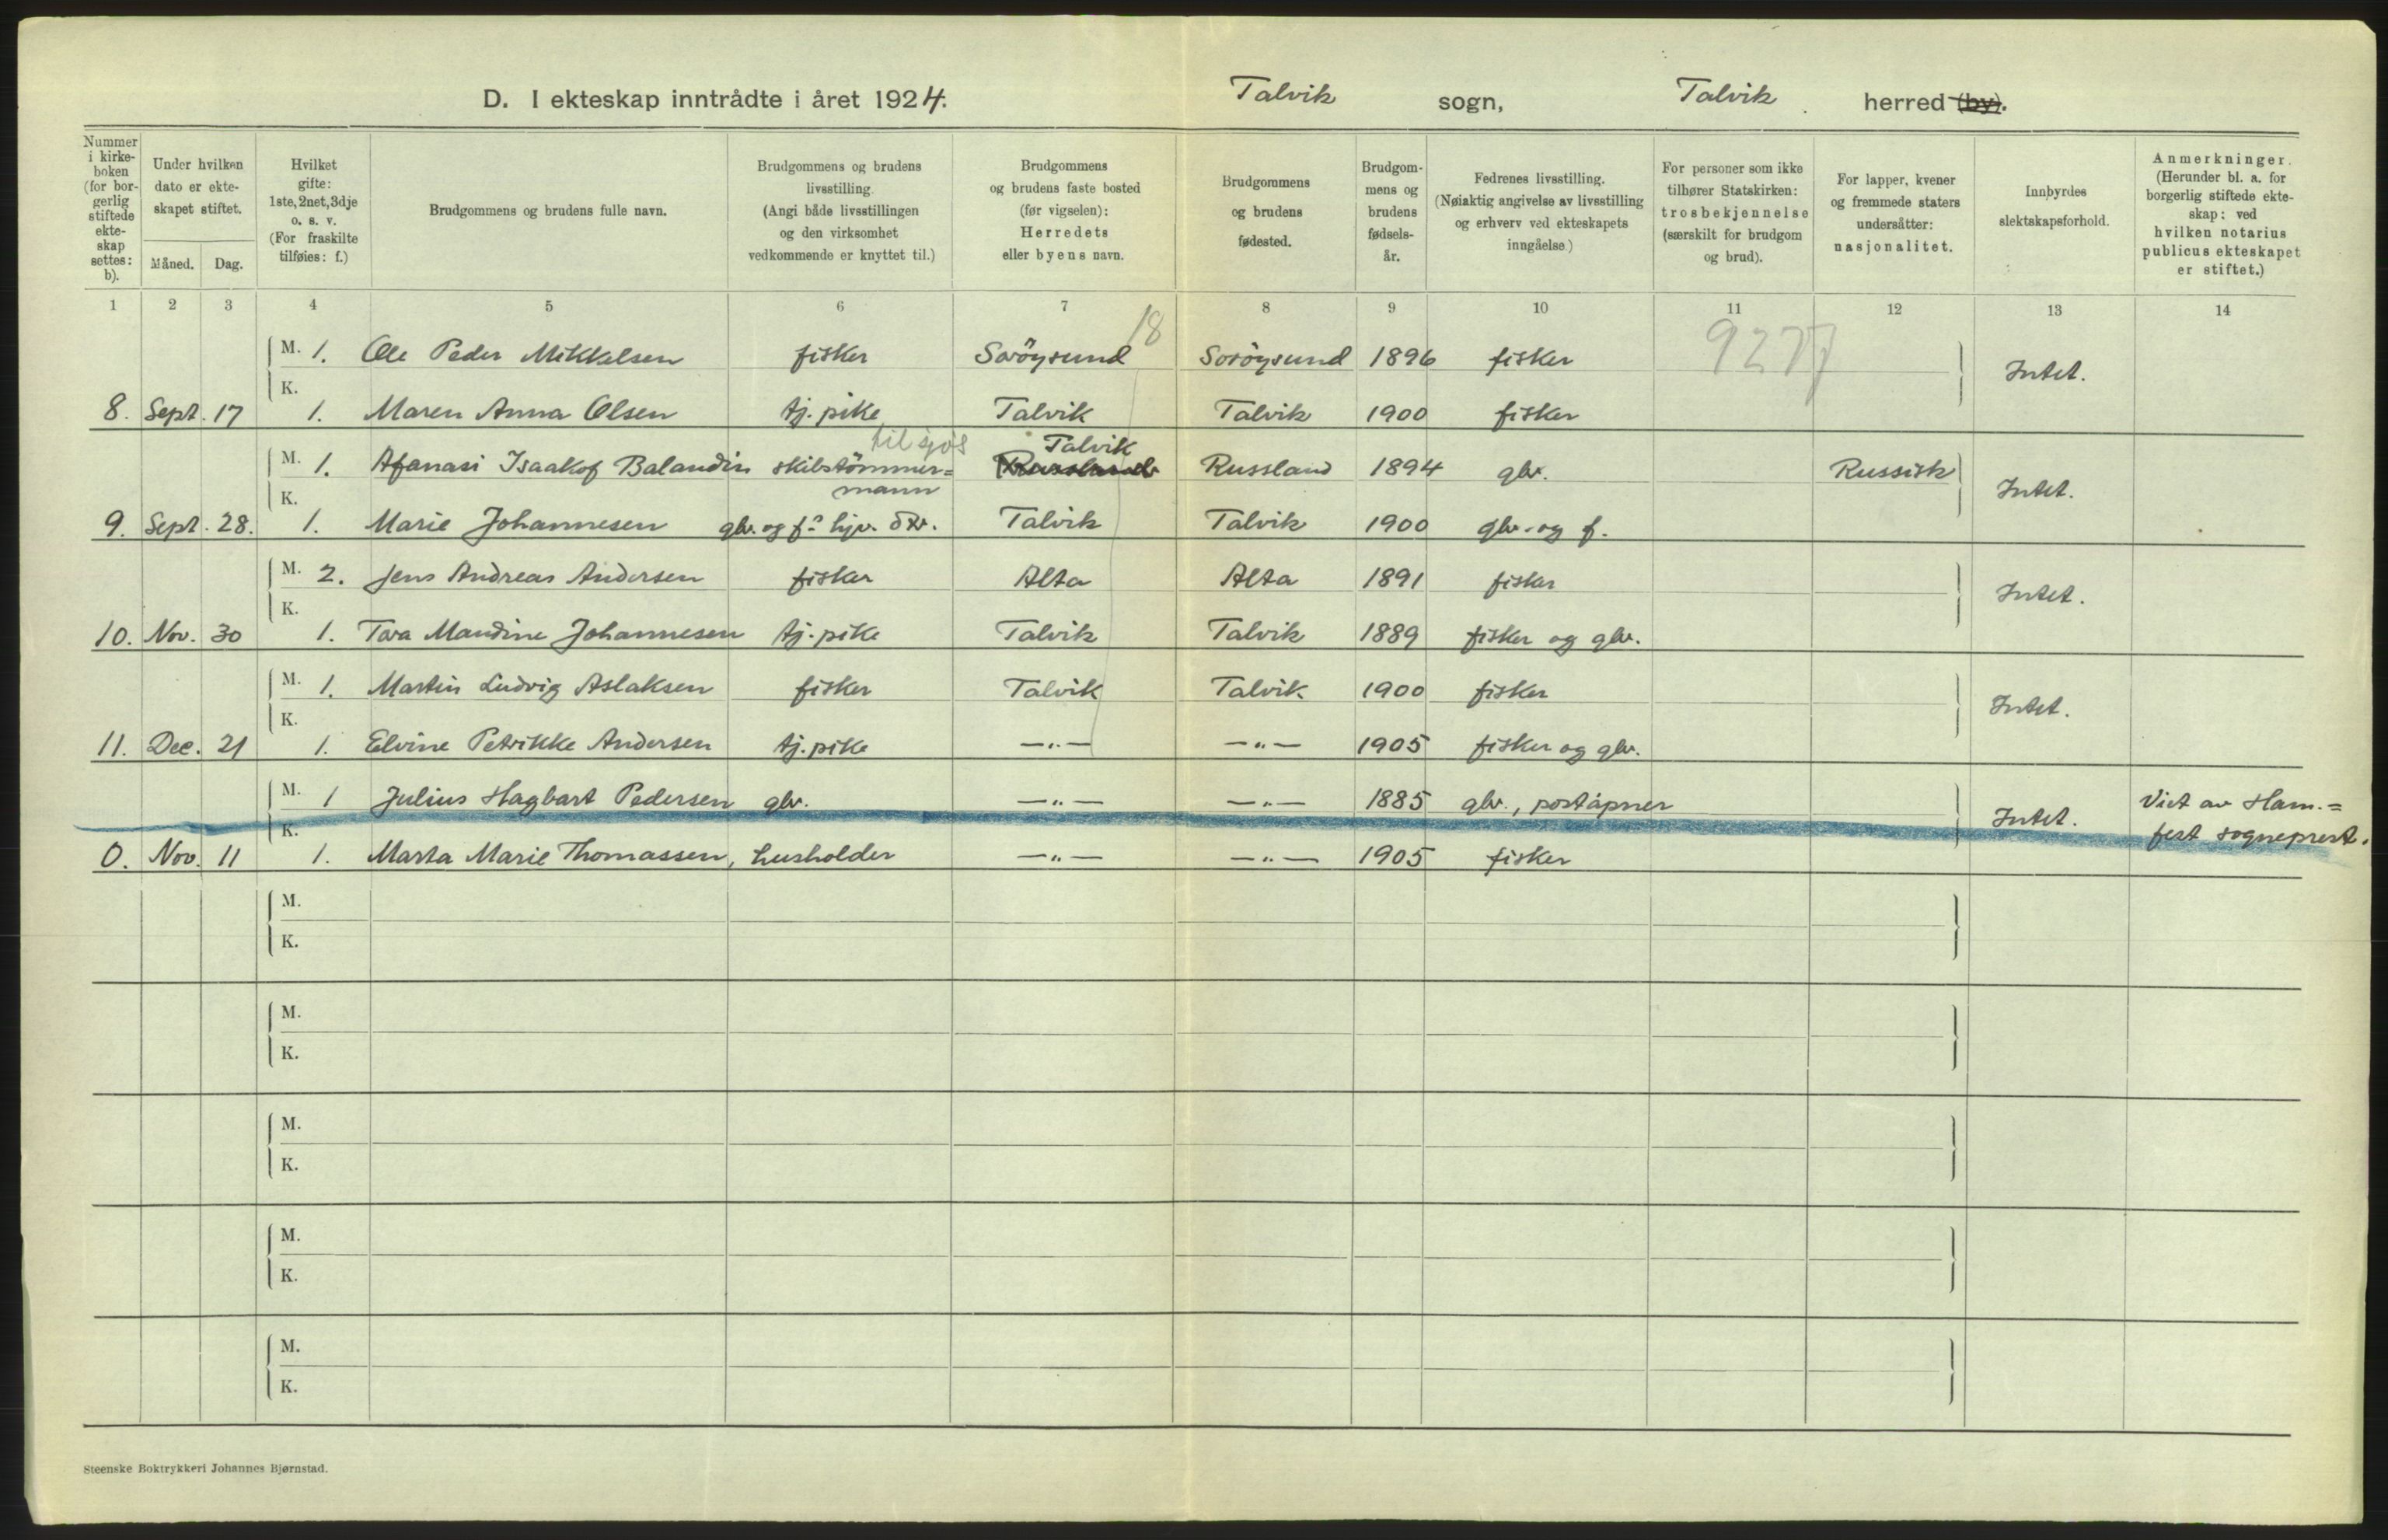 D. I ekteskap inntrådte i året 1924. Talvik sogn, Talvik herred (by).
Nummer i kirkeboken (for borgerlig stiftede ekteskap settes: b).
Under hvilken dato er ekteskapet stiftet.
Måned. Dag.
Hvilket gifte: 1ste, 2net, 3dje o. s. v. (For fraskilte tilføies: f.)
Brudgommens og brudens fulle navn.
Brudgommens og brudens livsstilling. (Angi både livsstillingen og den virksomhet vedkommende er knyttet til.)
Brudgommens og brudens faste bosted (før vigselen): Herredets eller byens navn.
Brudgommens og brudens fødested.
Brudgommens og brudens fødselsår.
Fedrenes livsstilling. (Nøiaktig angivelse av livsstilling og erhverv ved ekteskapets inngåelse.)
For personer som ikke tilhører Statskirken: trosbekjennelse (særskilt for brudgom og brud).
For lapper, kvener og fremmede staters undersåtter: nasjonalitet.
Innbyrdes slektskapsforhold.
Anmerkninger. (Herunder bl. a. for borgerlig stiftede ekteskap: ved hvilken notarius publicus ekteskapet er stiftet.)
1 2 3 4 5 6 7 8 9 10 11 12 13 14
18
M. 1. Ole Peder Mikkelsen fisker Sørøysund Sørøysund 1896 fisker 9277 Intet.
K.
8. Sept. 17 1. Maren Anna Olsen tj. pike Talvik Talvik 1900 fisker
til sjøs Talvik
M. 1. Afanasi Isaakof Balandin skibstömmer= Russland Russland 1894 gbr. Russisk Intet.
mann
K.
9. Sept. 28. 1. Marie Johannesen gbr. og f.s hjv. dtr. Talvik Talvik 1900 gbr. og f.
M. 2. Jens Andreas Andersen fisker Alta Alta 1891 fisker Intet.
K.
10. Nov. 30 1. Tora Mandine Johannesen tj. pike Talvik Talvik 1889 fisker og gbr.
M. 1. Martin Ludvig Aslaksen fisker Talvik Talvik 1900 fisker Intet.
K.
11. Dec. 21 1. Elvine Petrikke Andersen tj. pike —"— —"— 1905 fisker og gbr.
M. 1 Julius Hagbart Pedersen gbr. —"— —"— 1885 gbr., poståpner Intet. Viet av Ham.=
K. fest sogneprest.
0. Nov. 11 1. Marta Marie Thomassen, husholder —"— —"— 1905 fisker
M.
K.
M.
K.
M.
K.
M.
K.
M.
K.
Steenske Boktrykkeri Johannes Bjørnstad.